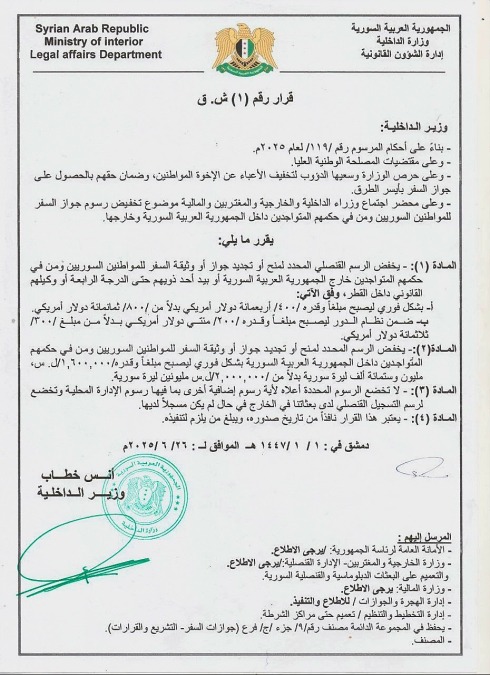 Syrian Arab Republic
Ministry of interior
Legal affairs Department
الجمهورية العربية السورية
وزارة الداخلية
إدارة الشؤون القانونية
قرار رقم (١) ش. ق
وزير الداخلية:
- بناءً على أحكام المرسوم رقم /١١٩/ لعام ٢٠٢٥م.
- وعلى مقتضيات المصلحة الوطنية العليا.
- وعلى حرص الوزارة وسعيها الدؤوب لتخفيف الأعباء عن الإخوة المواطنين، وضمان حقهم بالحصول على
جواز السفر بأيسر الطرق.
- وعلى محضر اجتماع وزراء الداخلية والخارجية والمغتربين والمالية موضوع تخفيض رسوم جواز السفر
للمواطنين السوريين ومن في حكمهم المتواجدين داخل الجمهورية العربية السورية وخارجها.
يقرر ما يلي:
المادة (١): - يخفض الرسم القنصلي المحدد لمنح أو تجديد جواز أو وثيقة السفر للمواطنين السوريين ومن في
حكمهم المتواجدين خارج الجمهورية العربية السورية أو بيد أحد ذويهم حتى الدرجة الرابعة أو وكيلهم
القانوني داخل القطر، وفق الآتي:
أ- بشكل فوري ليصبح مبلغاً وقدره /٤٠٠/ أربعمائة دولار أمريكي بدلاً من /٨٠٠/ ثمانمائة دولار أمريكي.
ب- ضمن نظام الدور ليصبح مبلغاً وقدره /٢٠٠/ مئتي دولار أمريكي بدلاً من مبلغ /٣٠٠/
ثلاثمائة دولار أمريكي.
المادة (٢): - يخفض الرسم المحدد لمنح أو تجديد جواز أو وثيقة السفر للمواطنين السوريين ومن في حكمهم
المتواجدين داخل الجمهورية العربية السورية بشكل فوري ليصبح مبلغاً وقدره /١,٦٠٠,٠٠٠/ل. س،
مليون وستمائة ألف ليرة سورية بدلاً من /٢,٠٠٠,٠٠٠/ل.س مليونين ليرة سورية.
المادة (٣): - لا تخضع الرسوم المحددة أعلاه لأية رسوم إضافية أخرى بما فيها رسوم الإدارة المحلية وتخضع
لرسم التسجيل القنصلي لدى بعثاتنا في الخارج في حال لم يكن مسجلاً لديها.
المادة (٤): - يعتبر هذا القرار نافذاً من تاريخ صدوره، ويبلغ من يلزم لتنفيذه.
دمشق في : ١ / ١ / ١٤٤٧ هـ الموافق لـ : ٢٦ / ٦ / ٢٠٢٥م
أنس خطاب
وزير الداخلية
المرسل إليهم :
- الأمانة العامة لرئاسة الجمهورية: /يرجى الاطلاع.
- وزارة الخارجية والمغتربين- الإدارة القنصلية:/يرجى الاطلاع.
والتعميم على البعثات الدبلوماسية والقنصلية السورية.
- وزارة المالية: يرجى الاطلاع.
- إدارة الهجرة والجوازات / للاطلاع والتنفيذ.
- إدارة التخطيط والتنظيم / تعميم حتى مراكز الشرطة.
- يحفظ في المجموعة الدائمة مصنف رقم/٩/ جزء /ج/ فرع (جوازات السفر- التشريع والقرارات).
- المصنف.